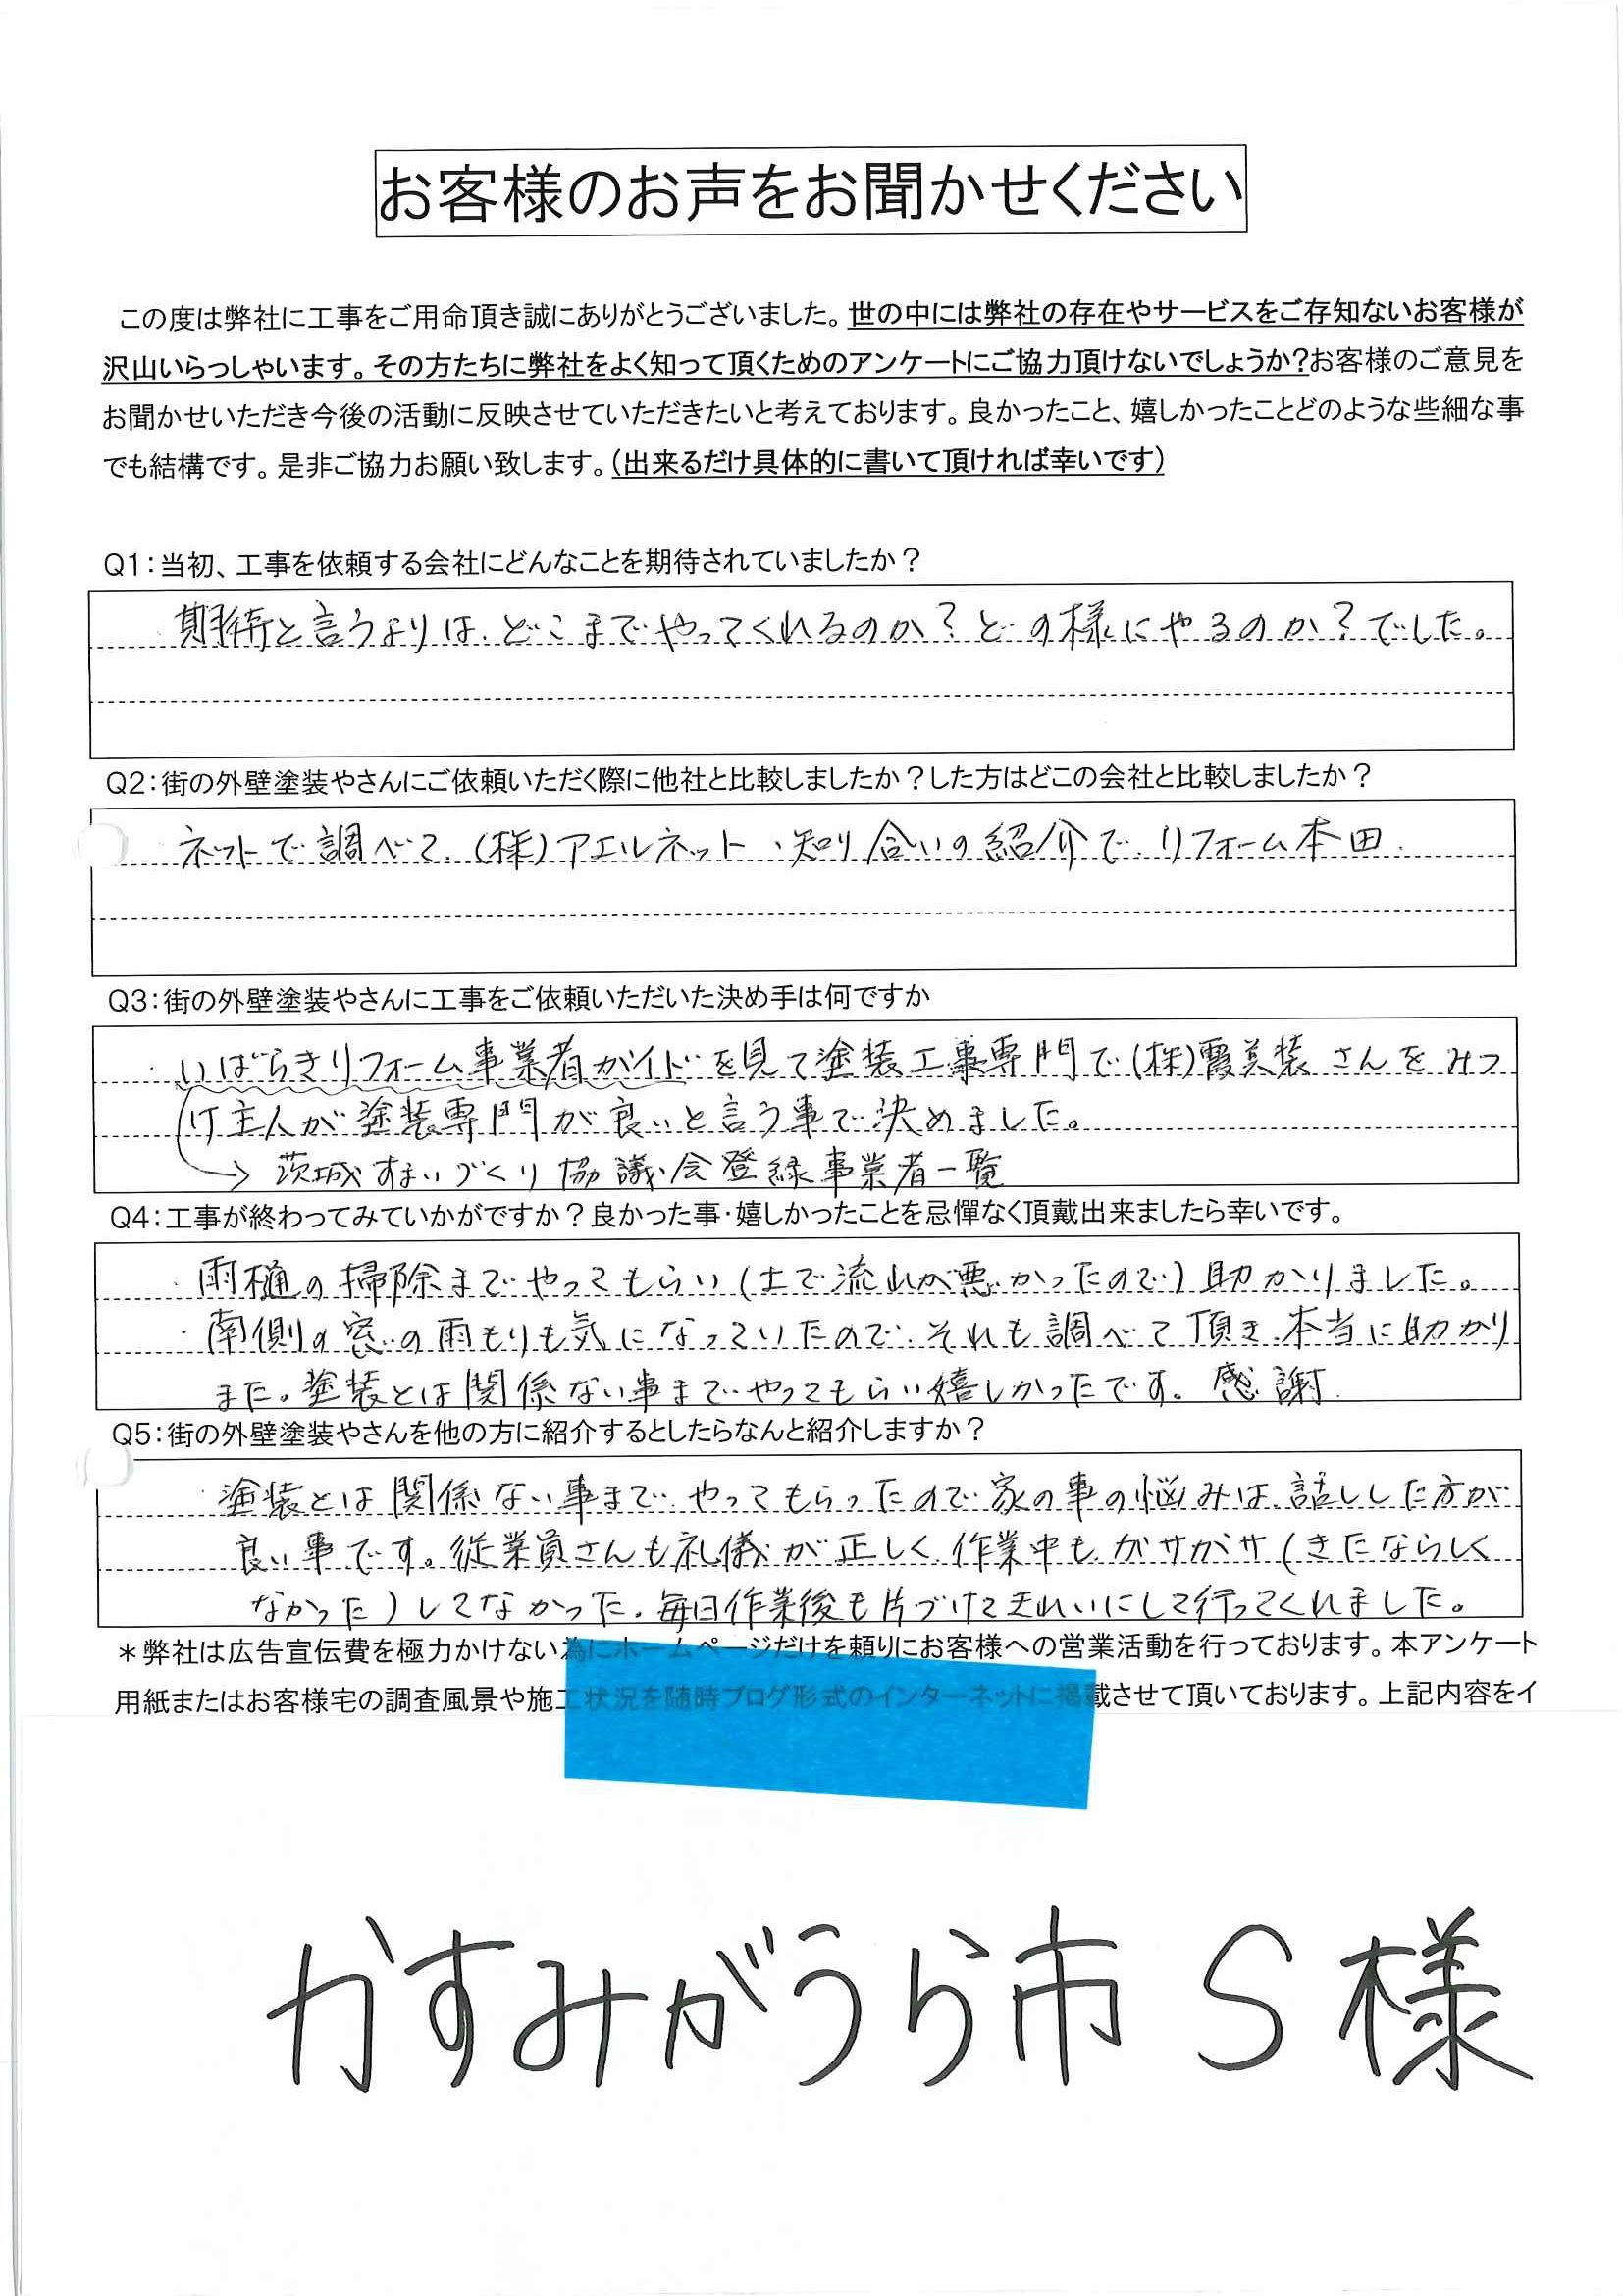 お客様のお声をお聞かせください
この度は弊社に工事をご用命頂き誠にありがとうございました。世の中には弊社の存在やサービスをご存知ないお客様が
沢山いらっしゃいます。その方たちに弊社をよく知って頂くためのアンケートにご協力頂けないでしょうか?お客様のご意見を
お聞かせいただき今後の活動に反映させていただきたいと考えております。良かったこと、嬉しかったことどのような些細な事
でも結構です。是非ご協力お願い致します。(出来るだけ具体的に書いて頂ければ幸いです)
Q1:当初、工事を依頼する会社にどんなことを期待されていましたか?
・期待と言うよりは、どこまでやってくれるのか?どの様にやるのか?でした。
Q2:街の外壁塗装やさんにご依頼いただく際に他社と比較しましたか?した方はどこの会社と比較しましたか?
・ネットで調べて、(株)アエルネット、知り合いの紹介で、リフォーム本田
Q3:街の外壁塗装やさんに工事をご依頼いただいた決め手は何ですか
・いばらきリフォーム事業者ガイドを見て塗装工事専門で(株)霞美装さんをみつ
け主人が塗装専門が良いと言う事で決めました。
→茨城すまいづくり協議会登録事業者一覧
Q4:工事が終わってみていかがですか?良かった事・嬉しかったことを忌憚なく頂戴出来ましたら幸いです。
・雨樋の掃除までやってもらい(土で流れが悪かったので)助かりました。
・南側の窓の雨もりも気になっていたので、それも調べて頂き、本当に助かり
また。塗装とは関係ない事までやってもらい嬉しかったです。感謝
Q5:街の外壁塗装やさんを他の方に紹介するとしたらなんと紹介しますか?
・塗装とは関係ない事まで、やってもらったので家の事の悩みは、話しした方が
良い事です。従業員さんも礼儀が正しく、作業中も、ガサガサ(きたならしく
なかった)してなかった。毎日作業後も片づけてきれいにして行ってくれました。
*弊社は広告宣伝費を極力かけない為にホームページだけを頼りにお客様への営業活動を行っております。本アンケート
用紙またはお客様宅の調査風景や施工状況を随時ブログ形式のインターネットに掲載させて頂いております。上記内容をイ
かすみがうら市 S様